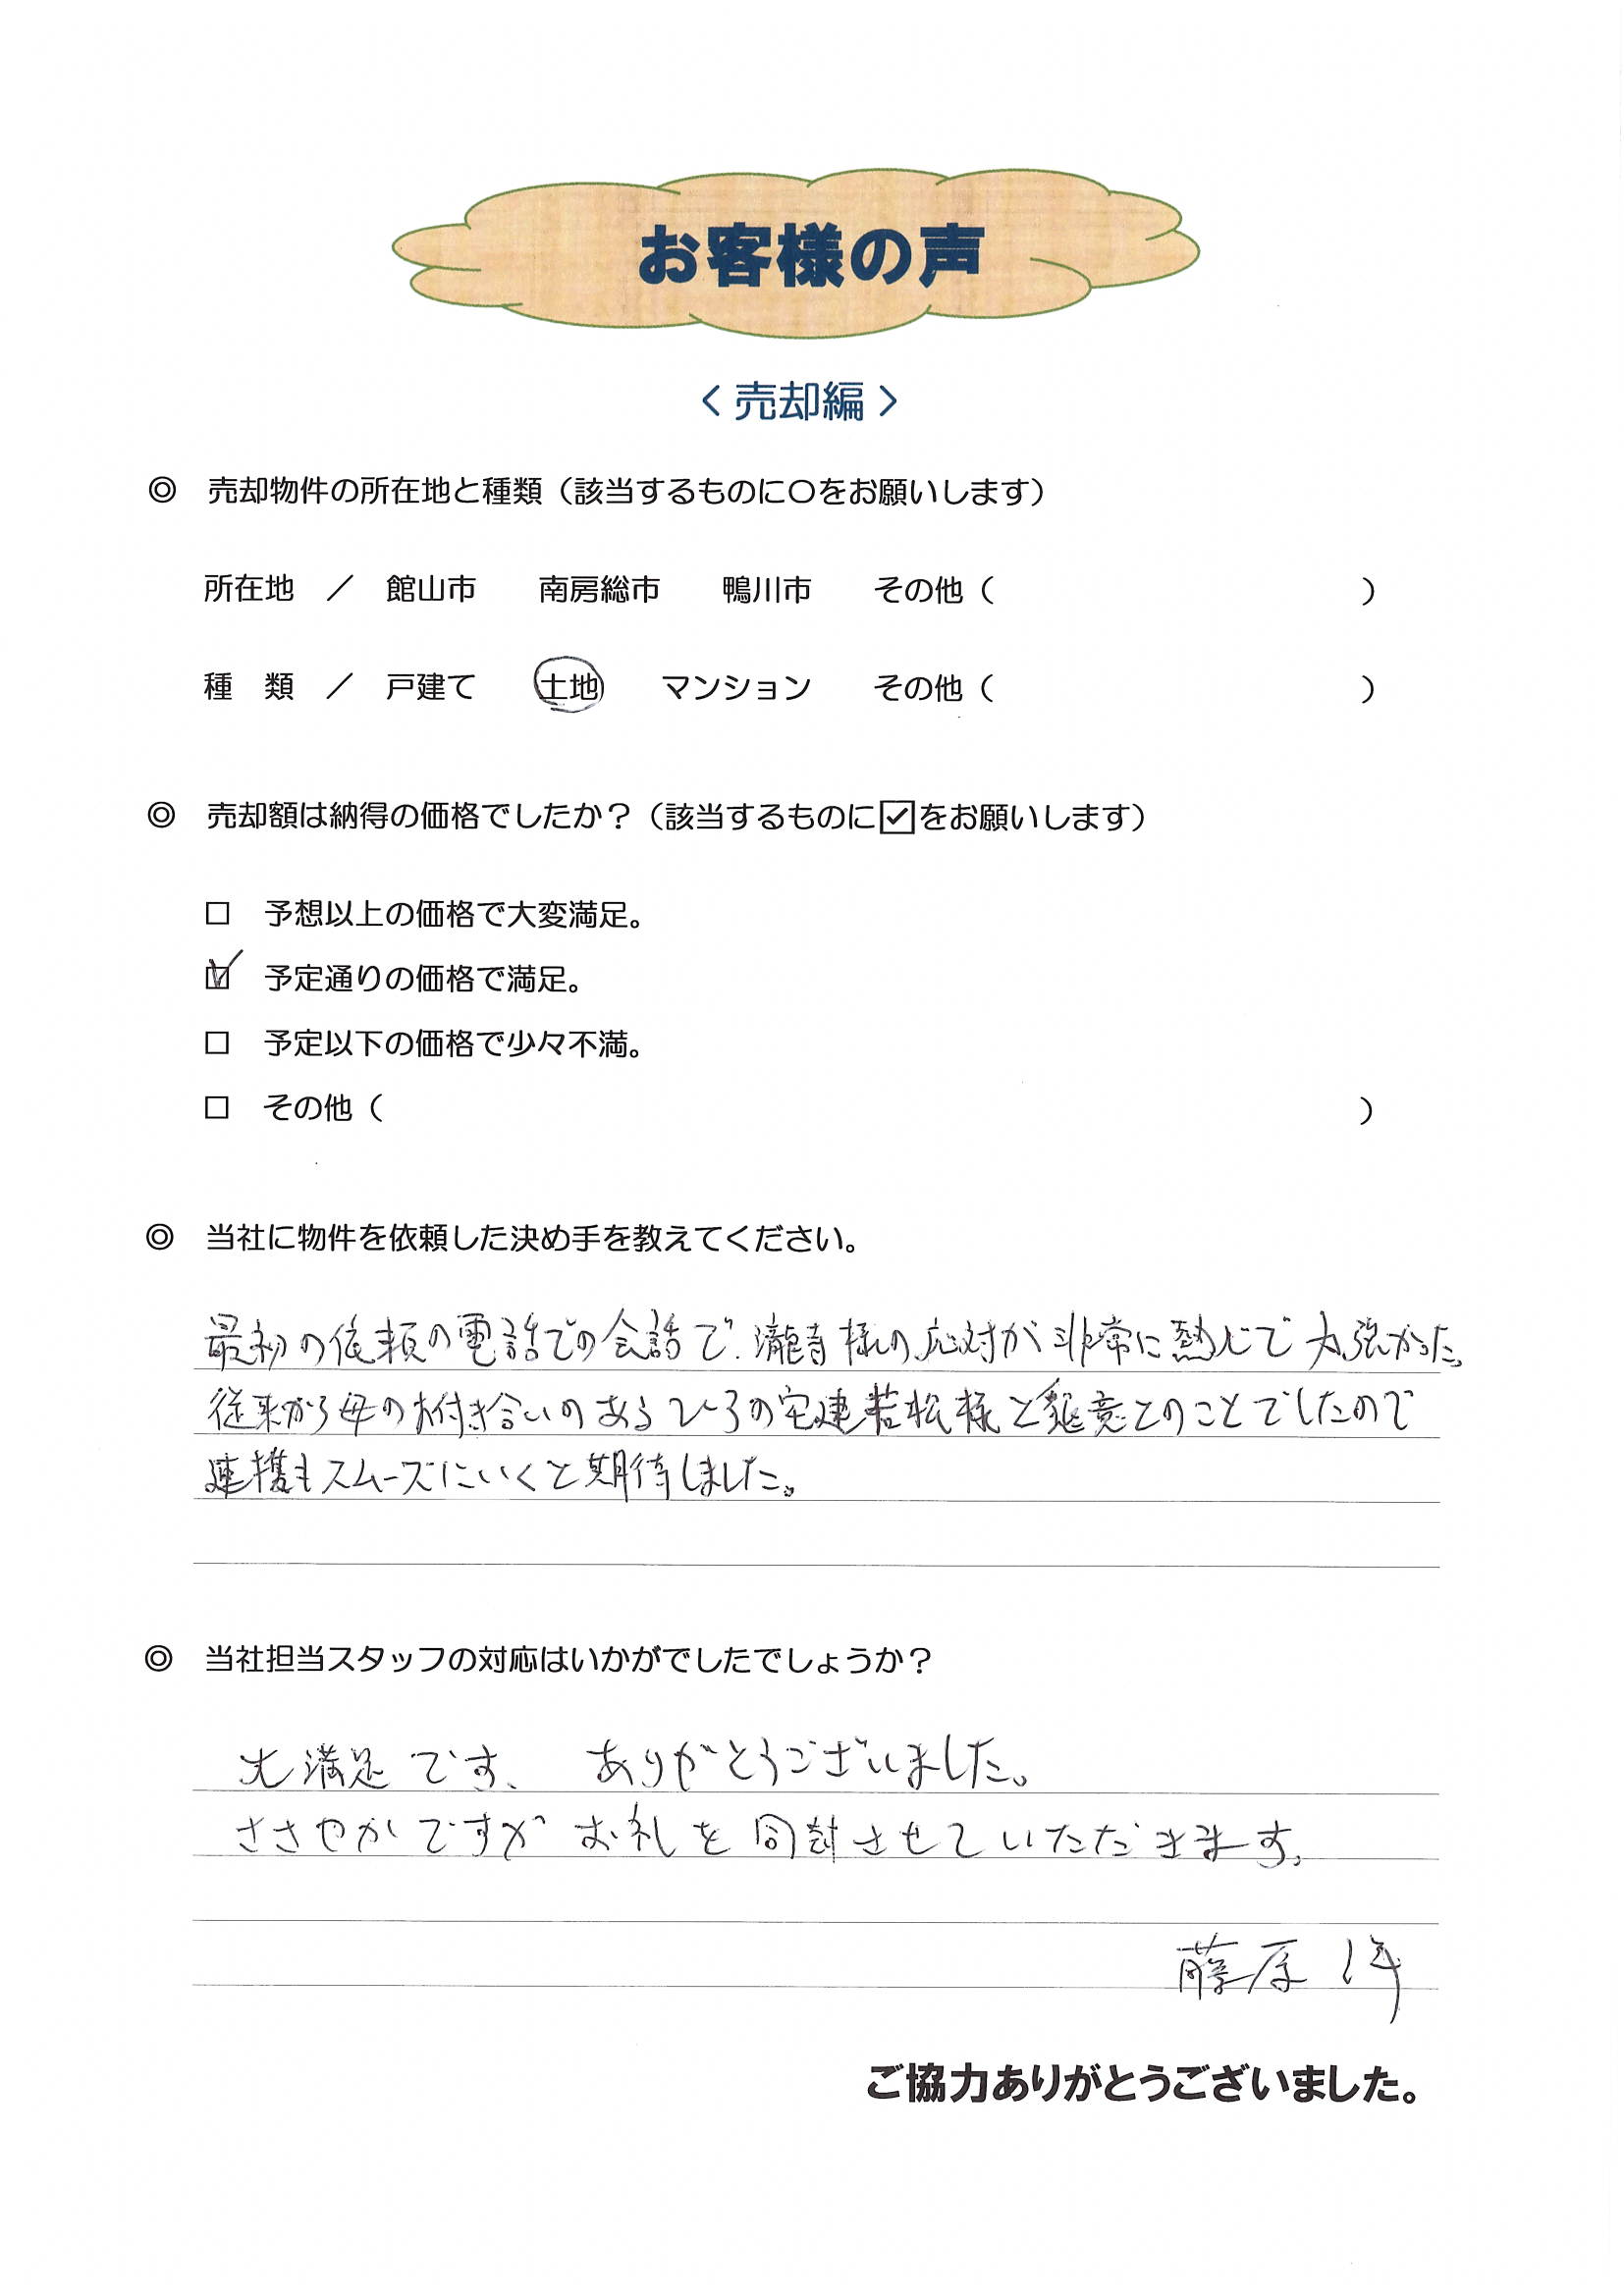 お客様の声
〈 売却編 〉
◎ 売却物件の所在地と種類（該当するものに〇をお願いします）
所在地 ／ 館山市 南房総市 鴨川市 その他（ ）
種 類 ／ 戸建て 土地 マンション その他（ ）
◎ 売却額は納得の価格でしたか？（該当するものに☑をお願いします）
□ 予想以上の価格で大変満足。
☑ 予定通りの価格で満足。
□ 予定以下の価格で少々不満。
□ その他（ ）
◎ 当社に物件を依頼した決め手を教えてください。
最初の依頼の電話での会話で、瀧寺様の応対が非常に熱心で力強かった。
従来から母の付き合いのあるひろの宅建若松様と懇意とのことでしたので
連携もスムーズにいくと期待しました。
◎ 当社担当スタッフの対応はいかがでしたでしょうか？
大満足です、 ありがとうございました。
ささやかですが お礼を同封させていただきます。
藤原
ご協力ありがとうございました。